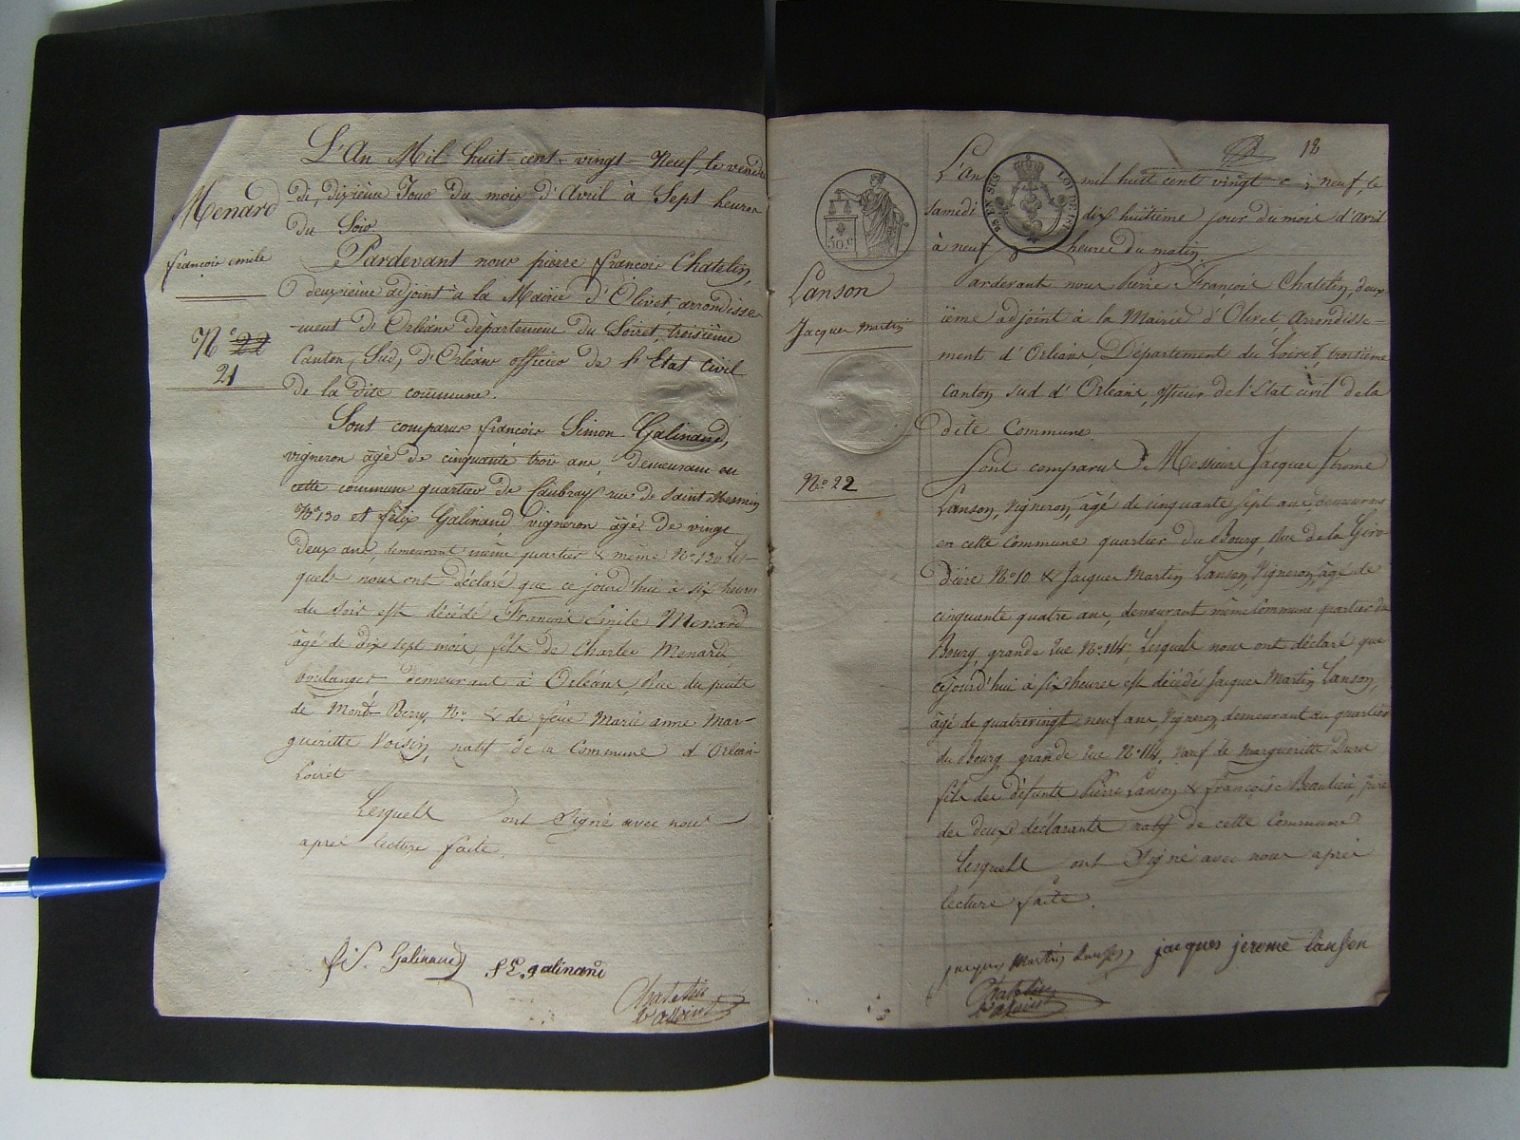 Menard
françois emile
N° 22
21
L'An Mil huit cent vingt Neuf, le vendre
di, dixième Jour du mois d'Avril à Sept heures
du Soir
Pardevant nous pierre françois Chatelin,
deuxième adjoint à la Mairie d'Olivet, arrondisse
-ment d'Orléans département du Loiret, troisième
Canton, Sud, d'Orléans officier de l'Etat Civil
de la dite commune.
Sont comparus françois Simon Galinand,
vigneron âgé de cinquante trois ans, demeurant en
cette commune quartier de Caubray rue de Saint Mesmin
N° 130 et félix Galinand vigneron âgé de vingt
deux ans, demeurant même quartier & même N° 130 les-
quels nous ont déclaré que ce jourd'hui à six heures
du soir est décédé François Emile Menard
âgé de dix sept mois, fils de Charles Menard
boulanger demeurant à Orléans, Rue du puits
de Berry, N° & de feue Marie anne Mar-
gueritte Voisin, natif de la Commune d'Orléans
Loiret
Lesquels ont Signé avec nous
après lecture faite.
f. S. Galinand f E. galinand
Chatelin
18
50 c
Lanson
Jacques Martin
N° 22
L'An mil huit cent vingt neuf, le
samedi dix huitième jour du mois d'Avril
à neuf heures du matin.
Pardevant nous Pierre François Chatelin, deux
ième adjoint à la Mairie d'Olivet, Arrondisse-
ment d'Orléans, Département du Loiret, troisième
canton sud d'Orléans, officier de l'Etat civil de la
dite Commune
Sont comparus Messieurs Jacques Jérome
Lanson, Vigneron, âgé de cinquante sept ans, demeurant
en cette Commune quartier du Bourg, Rue de la Giro
dière N° 10 & Jacques Martin Lanson, Vigneron, âgé de
cinquante quatre ans, demeurant même Commune quartier du
Bourg, grande Rue N° 114, Lesquels nous ont déclaré que
cejourd'hui à six heures est décédé Jacques Martin Lanson,
âgé de quatrevingt neuf ans, Vigneron, demeurant au quartier
du Bourg grande Rue N° 114, Veuf de Margueritte Duru
fils des défunts Pierre Lanson & Françoise Beaulieu, père
des deux déclarants natif de cette Commune
Lesquels ont Signé avec nous après
lecture faite.
jacques Martin Lanson jacques jerome lanson
Chatelin